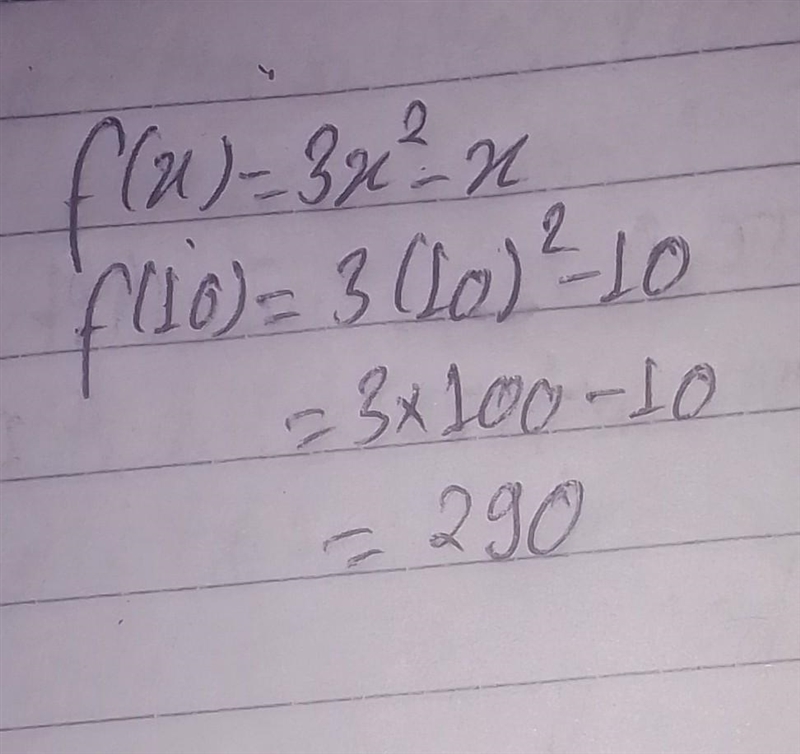 f(x) = 3x² - x
f(10) = 3(10)² - 10
= 3×100 - 10
= 290